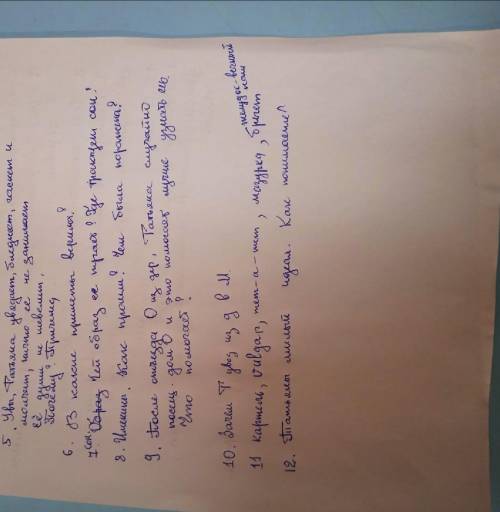 5 Увы, Татьяна увядает, бледнеет, гаснет и
молчит, ничто ее не занимает
её души не шевелит,
Почему? Причина
6. В какие приметы верила?
7 Сон. Чей образ ее пугает? Где Трактуем сон?
8. Именины. Как прошли? Чем была поражена?
9. После отъезда О из дер, Татьяна случайно
посещ. дом О и это помогает лучше узнать его
Что помогает?
10. Зачем Т увез из д в М
11 картель, vulgar, тет-а-тет, мазурка, брегет
12. Татьяны милый идеал. Как понимаете?